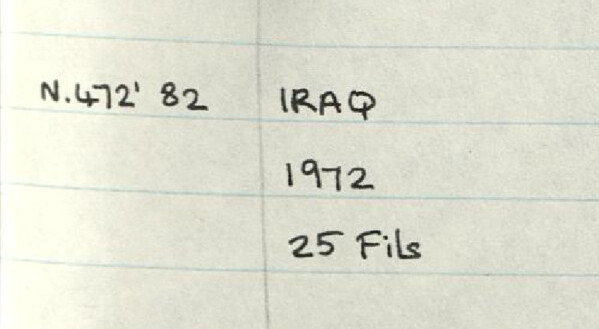 N.472' 82 IRAQ
1972
25 Fils